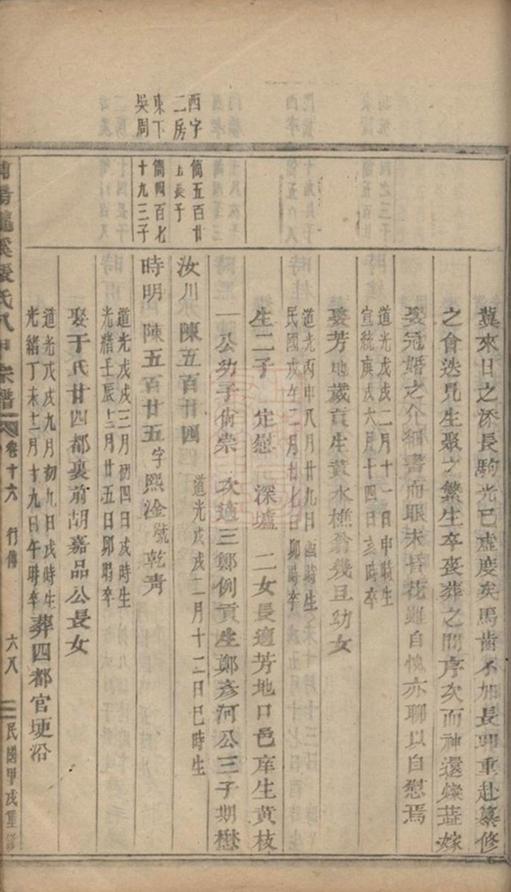 冀來日之添長駒光已虛度矣馬齒不加長即重赴纂修
之會迭見生聚之繁生卒喪葬之間序次而神還燦蓝嫁
娶冠婚之介細書而眼未昏花雖自愧亦聊以自慰焉
道光戊戌二月十一日申時生
宣統庚戌六月十四日亥時卒
娶芳地歲貢生黃水樵翁幾旦幼女
道光丙申八月廿九日酉時生
民國戊午二月廿七日卯時卒
生二子 定慰 深壚 二女長適芳地口邑庠生黃枝
一公幼子尚崇 次適三鄭例貢生鄭彥河公三子期懋
西字
二房
簡五百廿
五長子
汝川 陳五百廿四
道光戊戌二月十二日巳時生
東下
吳周
簡四百七
十九三子
時明 陳五百廿五 字熙淦 號乾青
道光戊戌三月初四日戌時生
光緒壬辰十二月廿五日卯時卒
娶于氏廿四都裏前胡嘉品公長女
道光戊戌九月初九日戌時生
光緒丁未十二月十九日午時卒
葬四都官埂沿
龍溪張氏八甲宗譜
卷十六 行傳
六八
民國甲戌重修